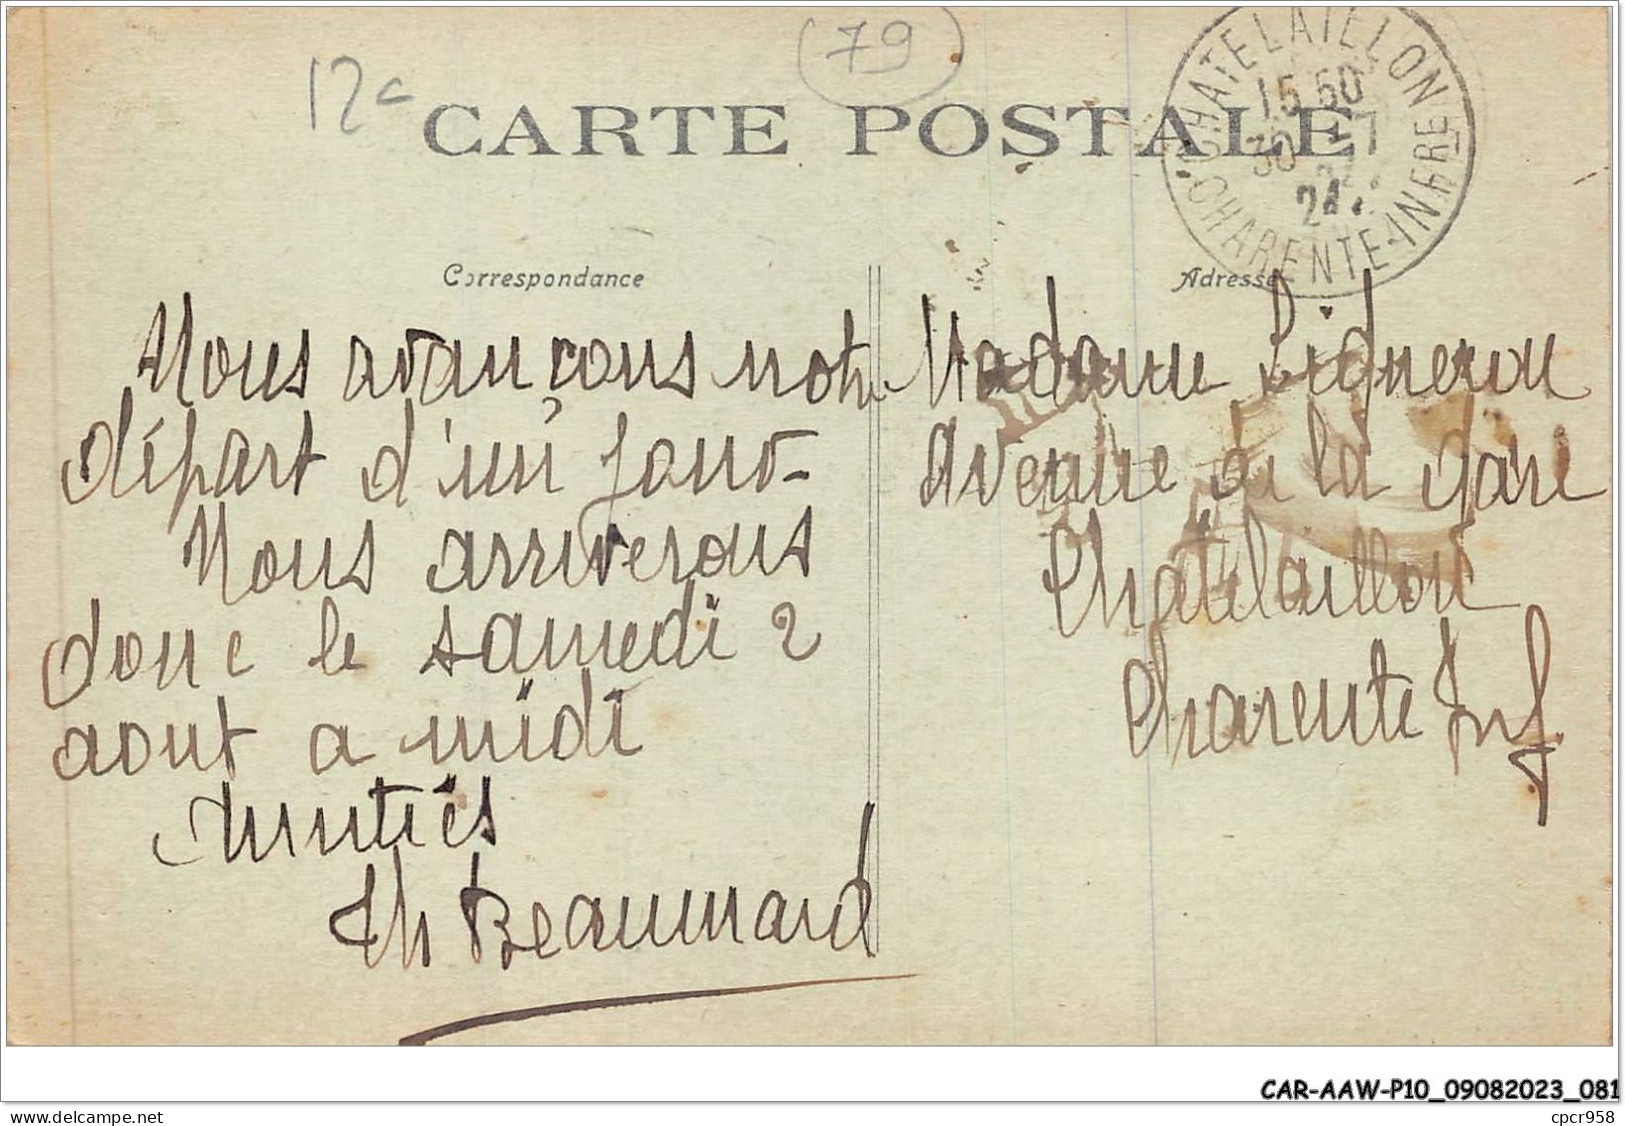 12c
79
CARTE POSTALE
CHATELAILLON
15 50
30 -7
24
CHARENTE-INFRE
Correspondance
Nous avançons notre
départ d'un jour-
Nous arriverons
donc le samedi 2
aout a midi
Amitiés
Th Beaumard
Adresse
Madame Pigneron
Avenue de la Gare
Chatelaillon
Charente Inf.
CAR-AAW-P10_09082023_081
cpcr958